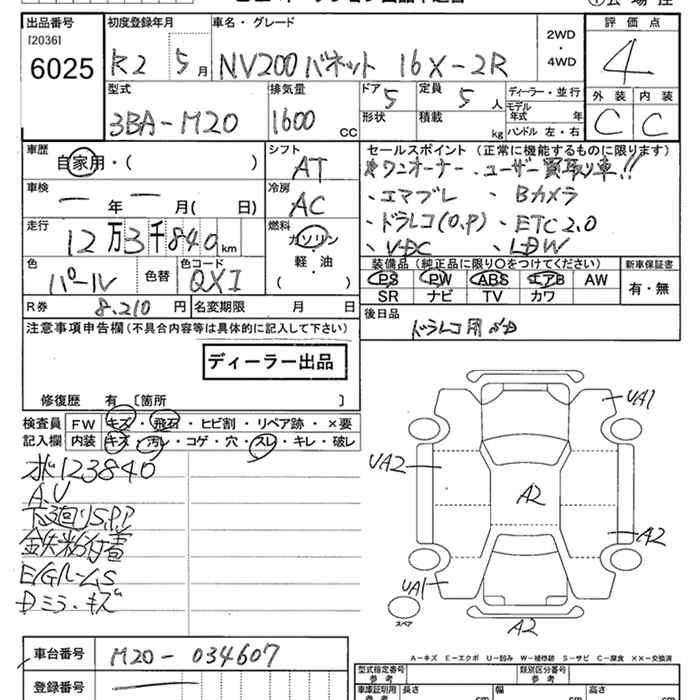 出品番号 初度登録年月 車名・グレード 評価点
[2036]
6025
R2 5月 NV200 バネット 16X-2R 2WD・4WD 4
型式 排気量 ドア 定員 ディーラー・並行 外装 内装
3BA-M20 1600cc 5 5人 モデル年式 年 C C
形状 積載 kg ハンドル 左・右
車歴 シフト セールスポイント (正常に機能するものに限ります)
自家用・( ) AT ・ワンオーナー ・ユーザー買取り車!!
車検 冷房 ・エマブレ ・Bカメラ
ー年ー月( 日) AC ・ドラレコ(O.P) ・ETC2.0
走行 燃料 ・VDC ・LDW
12万3千840km ガソリン
軽・油
( )
装備品 (純正品に限り○をつけてください) 新車保証書
色 色替 色コード PS PW ABS エアB AW 有・無
パール QX1 SR ナビ TV カワ
R券 8.210円 名変期限 月 日 後日品
注意事項申告欄 (不具合内容等は具体的に記入して下さい)
ディーラー出品
修復歴 有 [箇所 ]
検査員 FW キズ・飛石・ヒビ割・リペア跡・×要
記入欄 内装 キズ・汚レ・コゲ・穴・スレ・キレ・破レ
UA1
UA2
A2
A2
UA1
スペア
A2
123840
A.U
下廻りS.P.P
鉄粉付着
E/GルームS
Dミラーキズ
A-キズ E-エクボ U-凹み W-補修跡 S-サビ C-腐食 XX-交換済
車台番号 M20-034607
登録番号
型式指定番号 参考 類別区分番号 参考
車庫証明用 参考 長さ cm 幅 cm 高さ cm